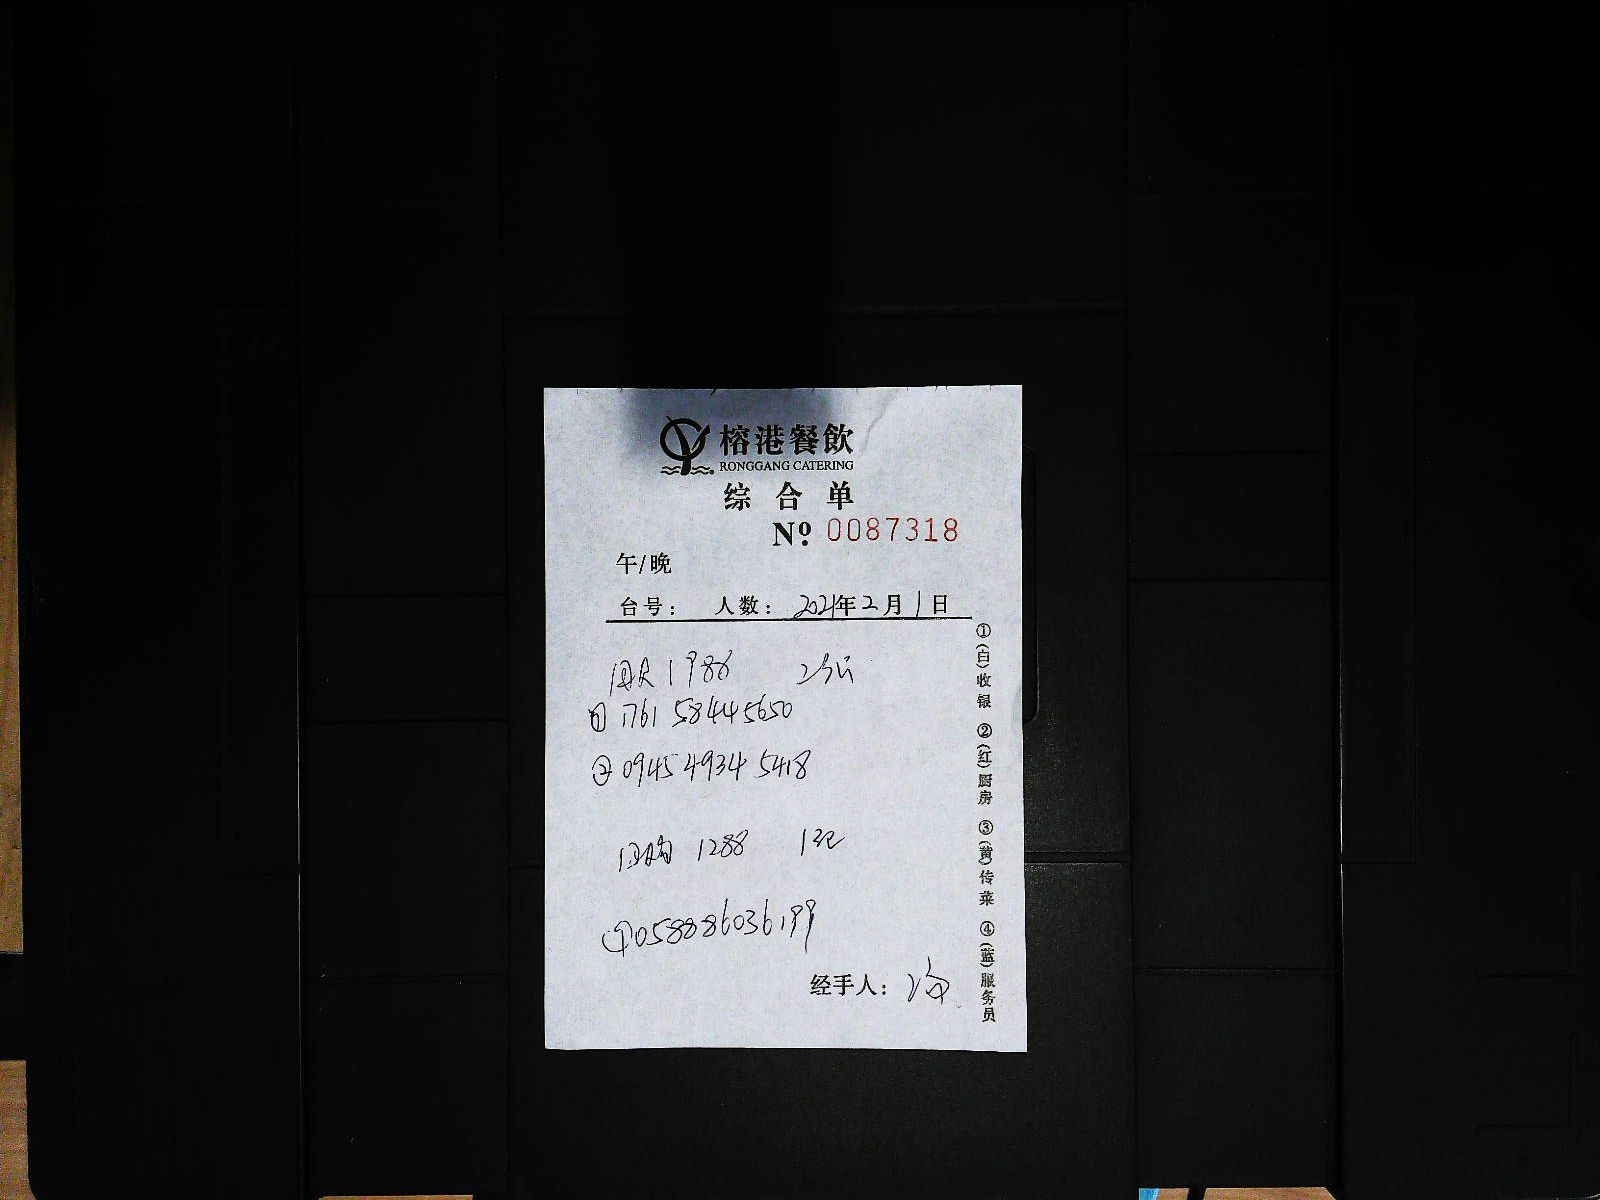 榕港餐飲
RONGGANG CATERING
综合单
Nº 0087318
午/晚
台号： 人数： 2021年2月1日
1988
① 1761 5844 5650
② 0945 4934 5418
团购 1288
① 058886036199
经手人：
①(白)收银 ②(红)厨房 ③(黄)传菜 ④(蓝)服务员